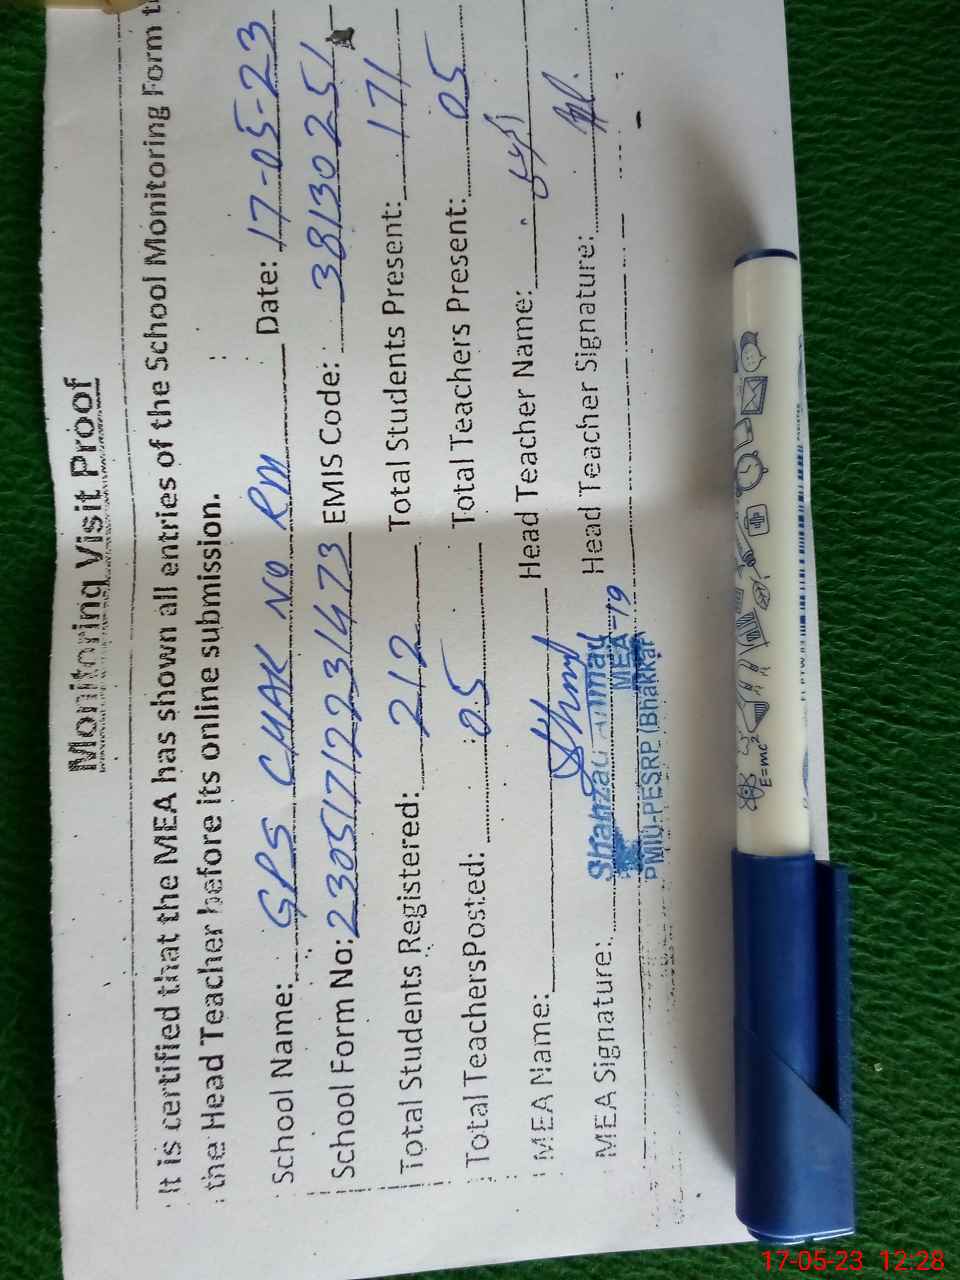 Monitoring Visit Proof
It is certified that the MEA has shown all entries of the School Monitoring Form t
the Head Teacher before its online submission.
School Name: GPS CHAK No RM Date: 17-05-23
School Form No: 230517122231473 EMIS Code: 38130251
Total Students Registered: 212 Total Students Present: 171
Total TeachersPosted: 05 Total Teachers Present: 05
MEA Name: Head Teacher Name:
MEA Signature: Shahzad Ahmad Head Teacher Signature:
MEA-19
PMIU-PESRP (Bhakkar)
E=mc²
17-05-23 12:28